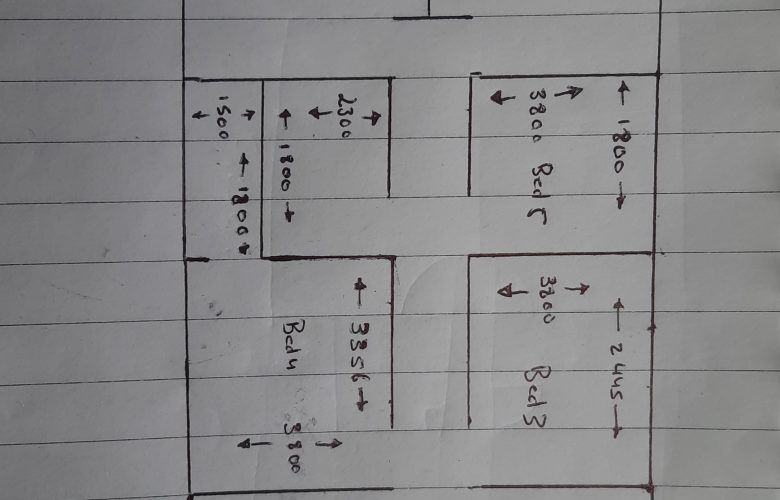 1800
3800 Bed 5
2300
1800
1500
1800
2445
3800 Bed 3
3356
Bed 4
3800